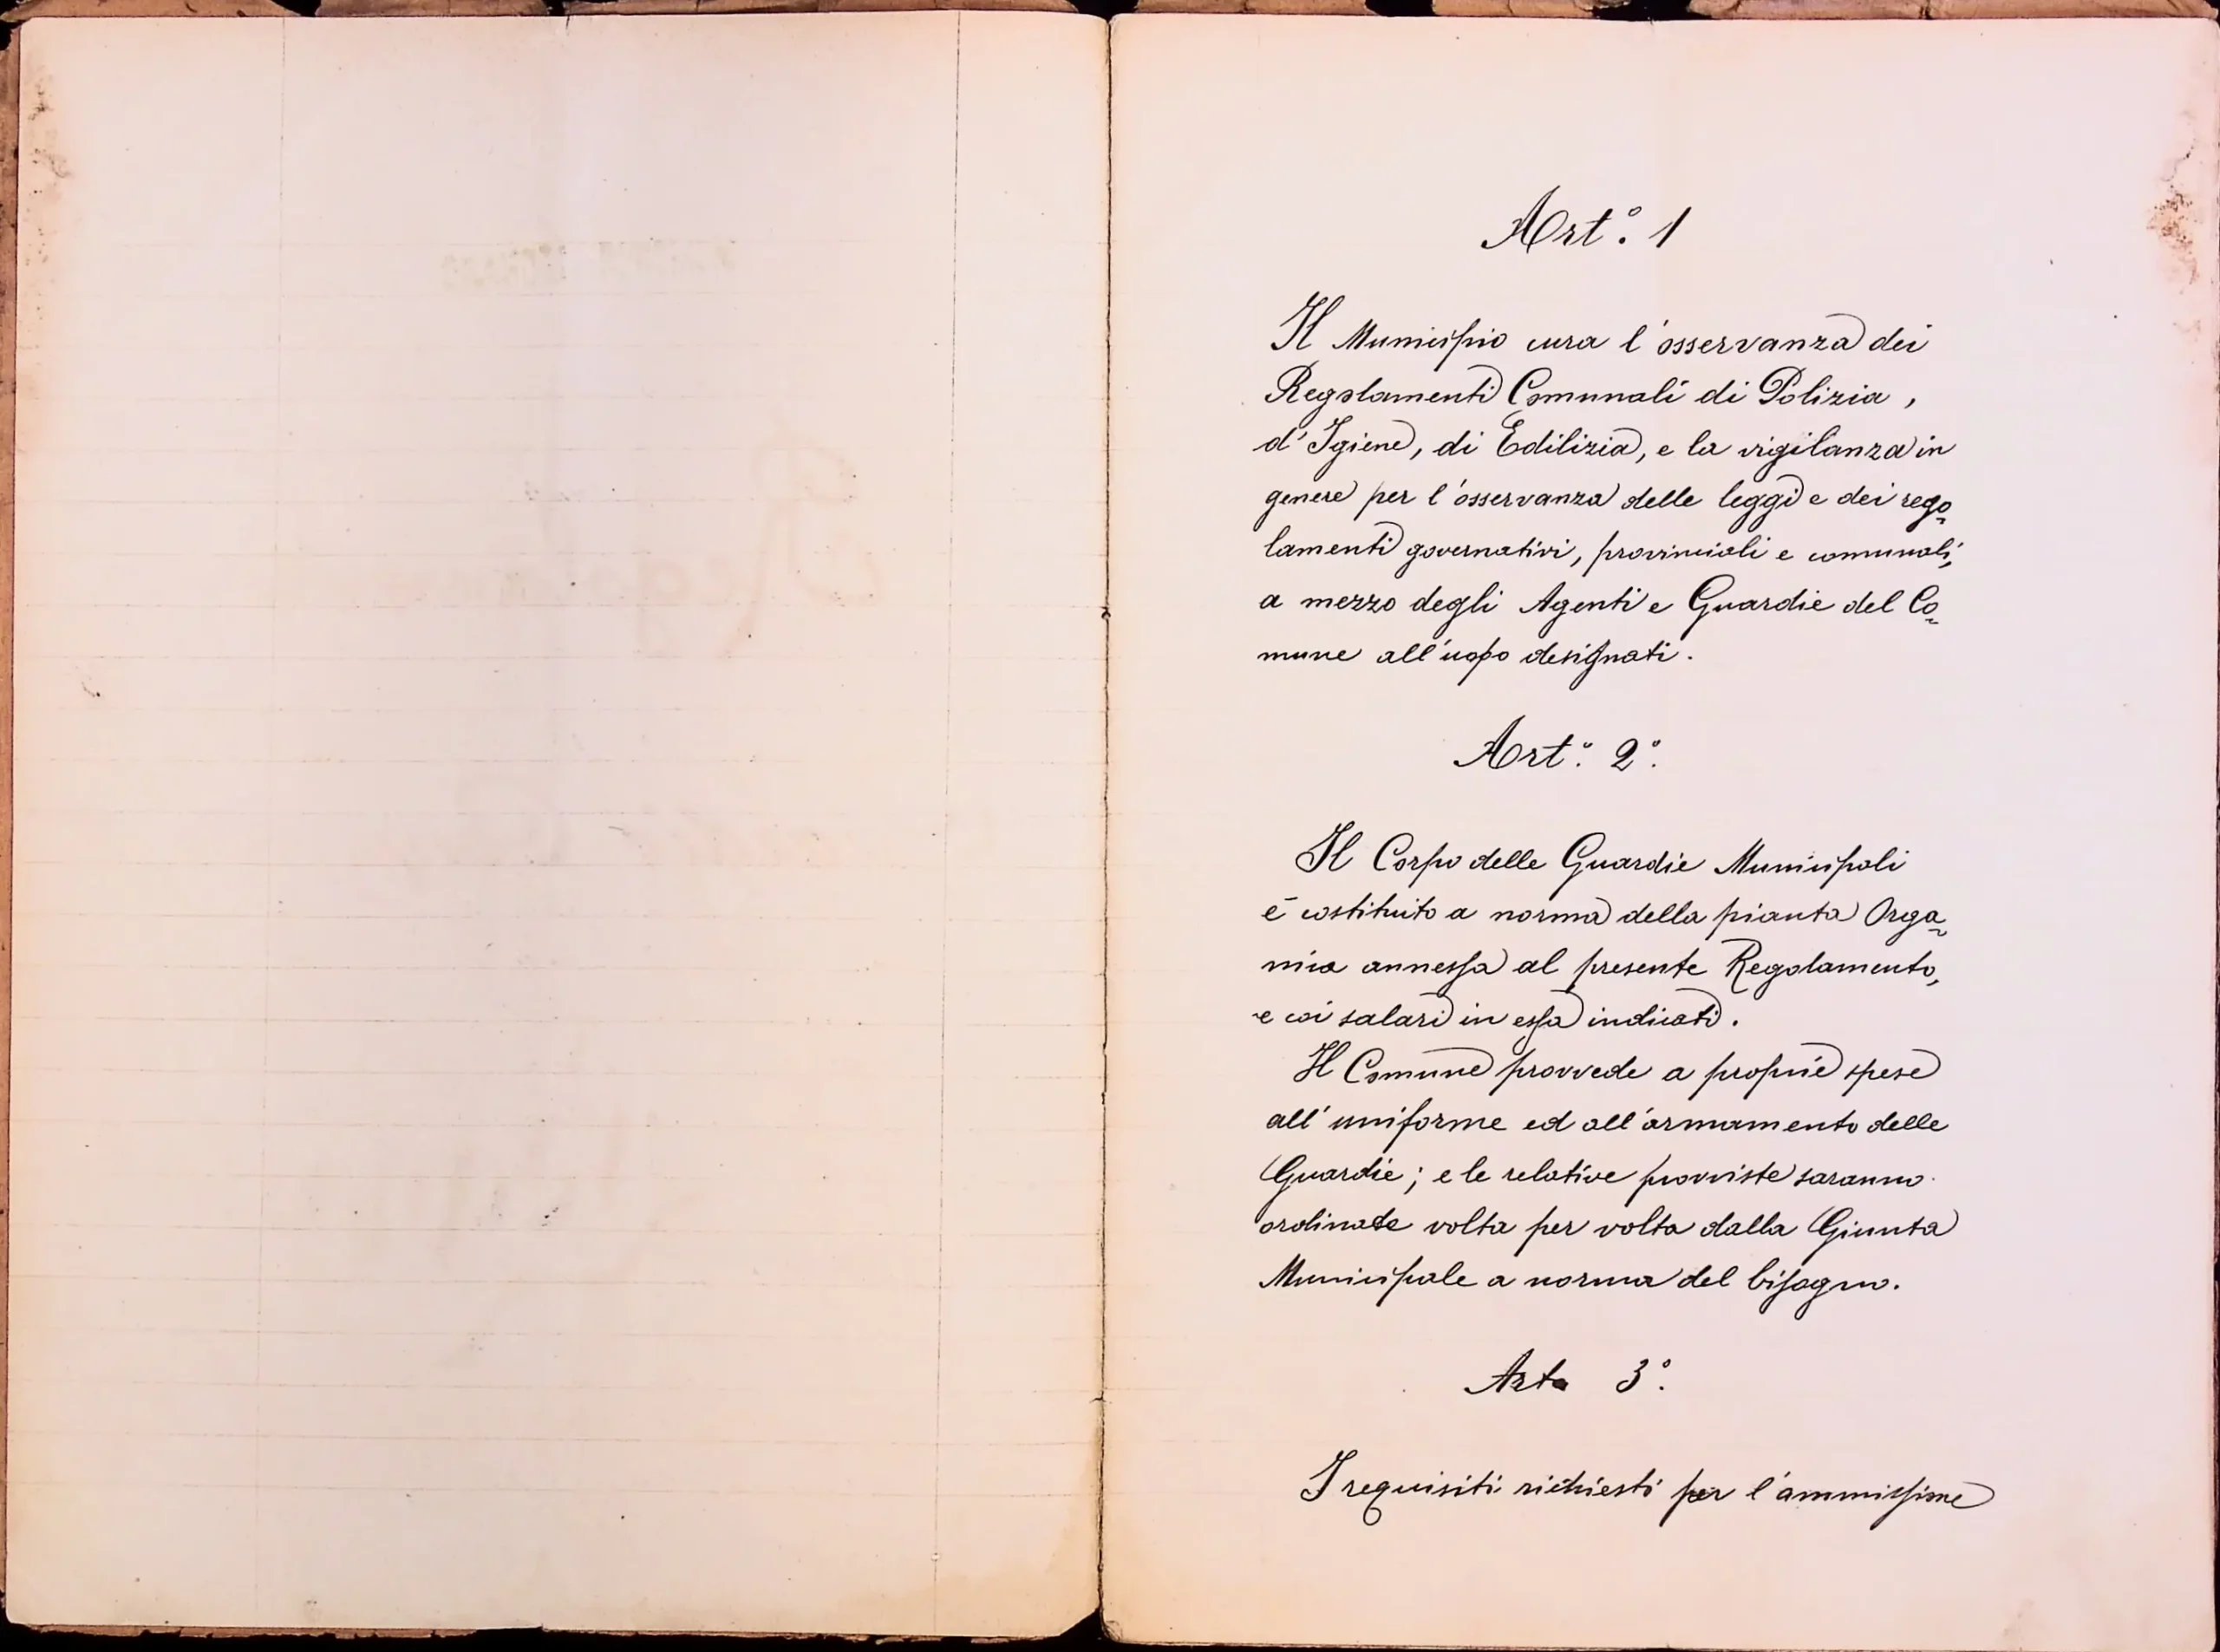 Art.° 1
Il Municipio cura l'osservanza dei
Regolamenti Comunali di Polizia,
d'Igiene, di Edilizia, e la vigilanza in
genere per l'osservanza delle leggi e dei rego-
lamenti governativi, provinciali e comunali,
a mezzo degli Agenti e Guardie del Co-
mune all'uopo designati.
Art.° 2°.
Il Corpo delle Guardie Municipali
è costituito a norma della pianta Orga-
nica annessa al presente Regolamento,
e coi salari in essa indicati.
Il Comune provvede a proprie spese
all'uniforme ed all'armamento delle
Guardie; e le relative provviste saranno
ordinate volta per volta dalla Giunta
Municipale a norma del bisogno.
Arto 3°.
I requisiti richiesti per l'ammissione